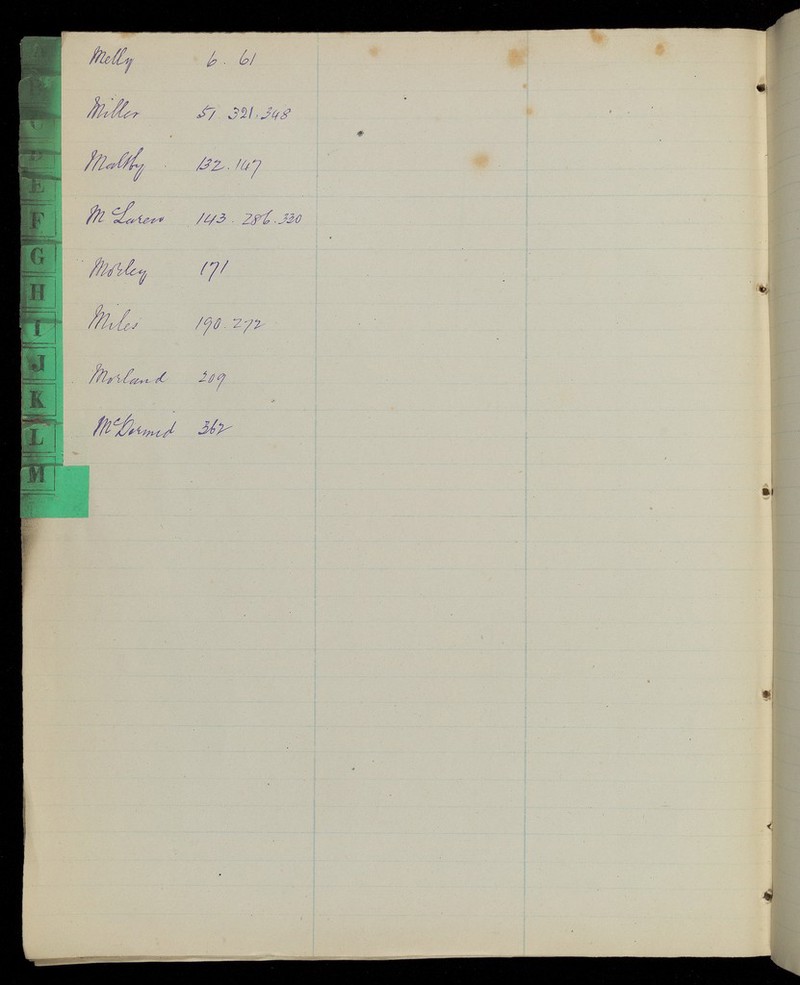 Melly 6. 61
Miller 51 321. 348
Maltby 132. 147
McLaren 143. 286. 330
Morley 171
Miles 190. 272
Morland 209
McDermid 362
E
F
G
H
I
J
K
L
M